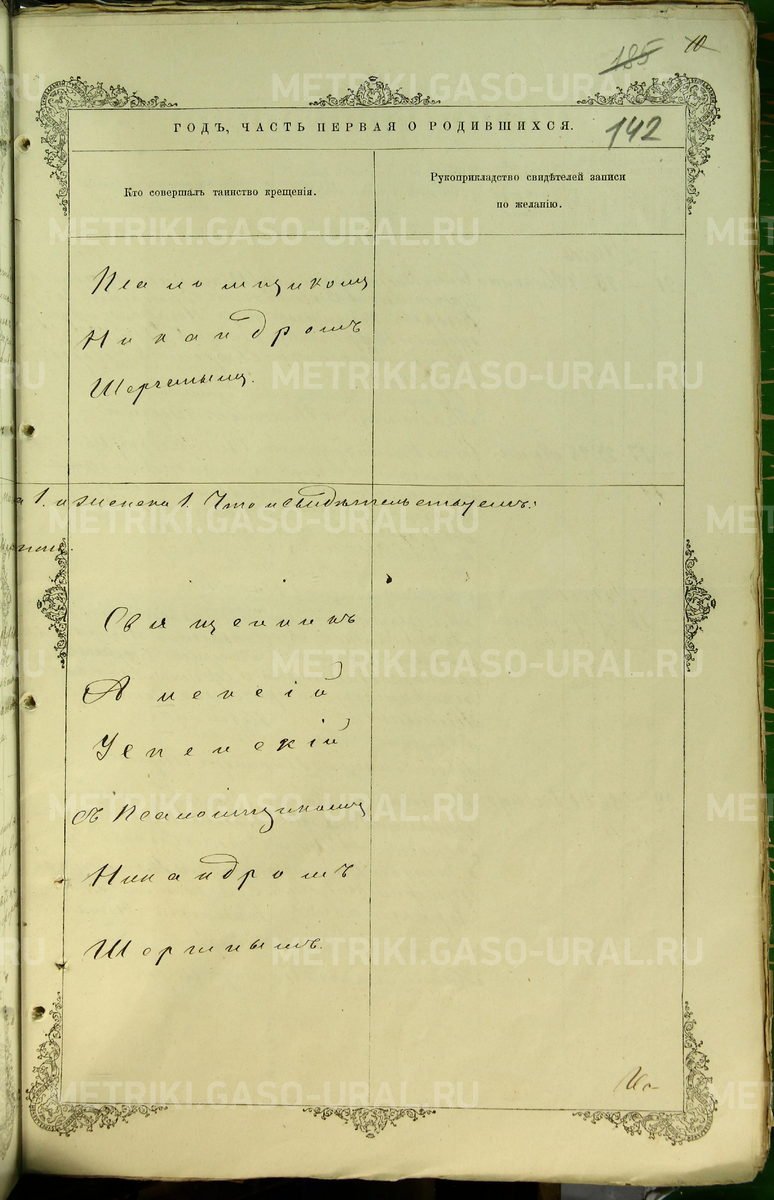 185 10
142
ГОДЪ, ЧАСТЬ ПЕРВАЯ О РОДИВШИХСЯ.
Кто совершалъ таинство крещенія.
Рукоприкладство свидѣтелей записи
по желанію.
Псаломщикомъ
Никандромъ
а 1. и женска 1. Что и свидѣтельствуемъ:
Священникъ
Алексій
Успенскій
съ Псаломщикомъ
Никандромъ
METRIKI.GASO-URAL.RU